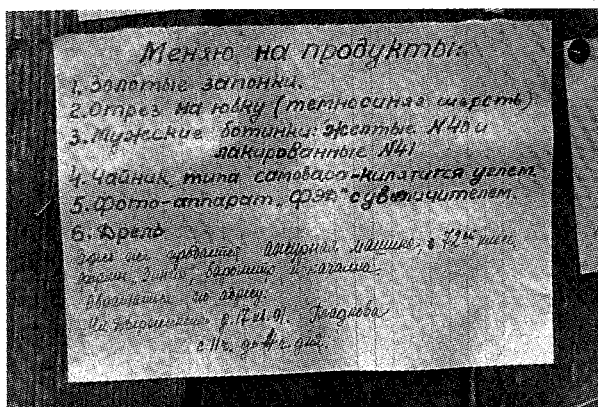 Меняю на продукты:
1. Золотые запонки.
2. Отрез на юбку (темносиняя шерсть)
3. Мужские ботинки: желтые N40 и
лакированные N41
4. Чайник типа самовара-кипятится углем.
5. Фото-аппарат "ФЭД" с увеличителем.
6. Дрель
продается машина, в 72
барометр и качалка.
Обращаться по адресу:
д. 17 кв. 91.
с 11 ч. до 4 ч. дня.